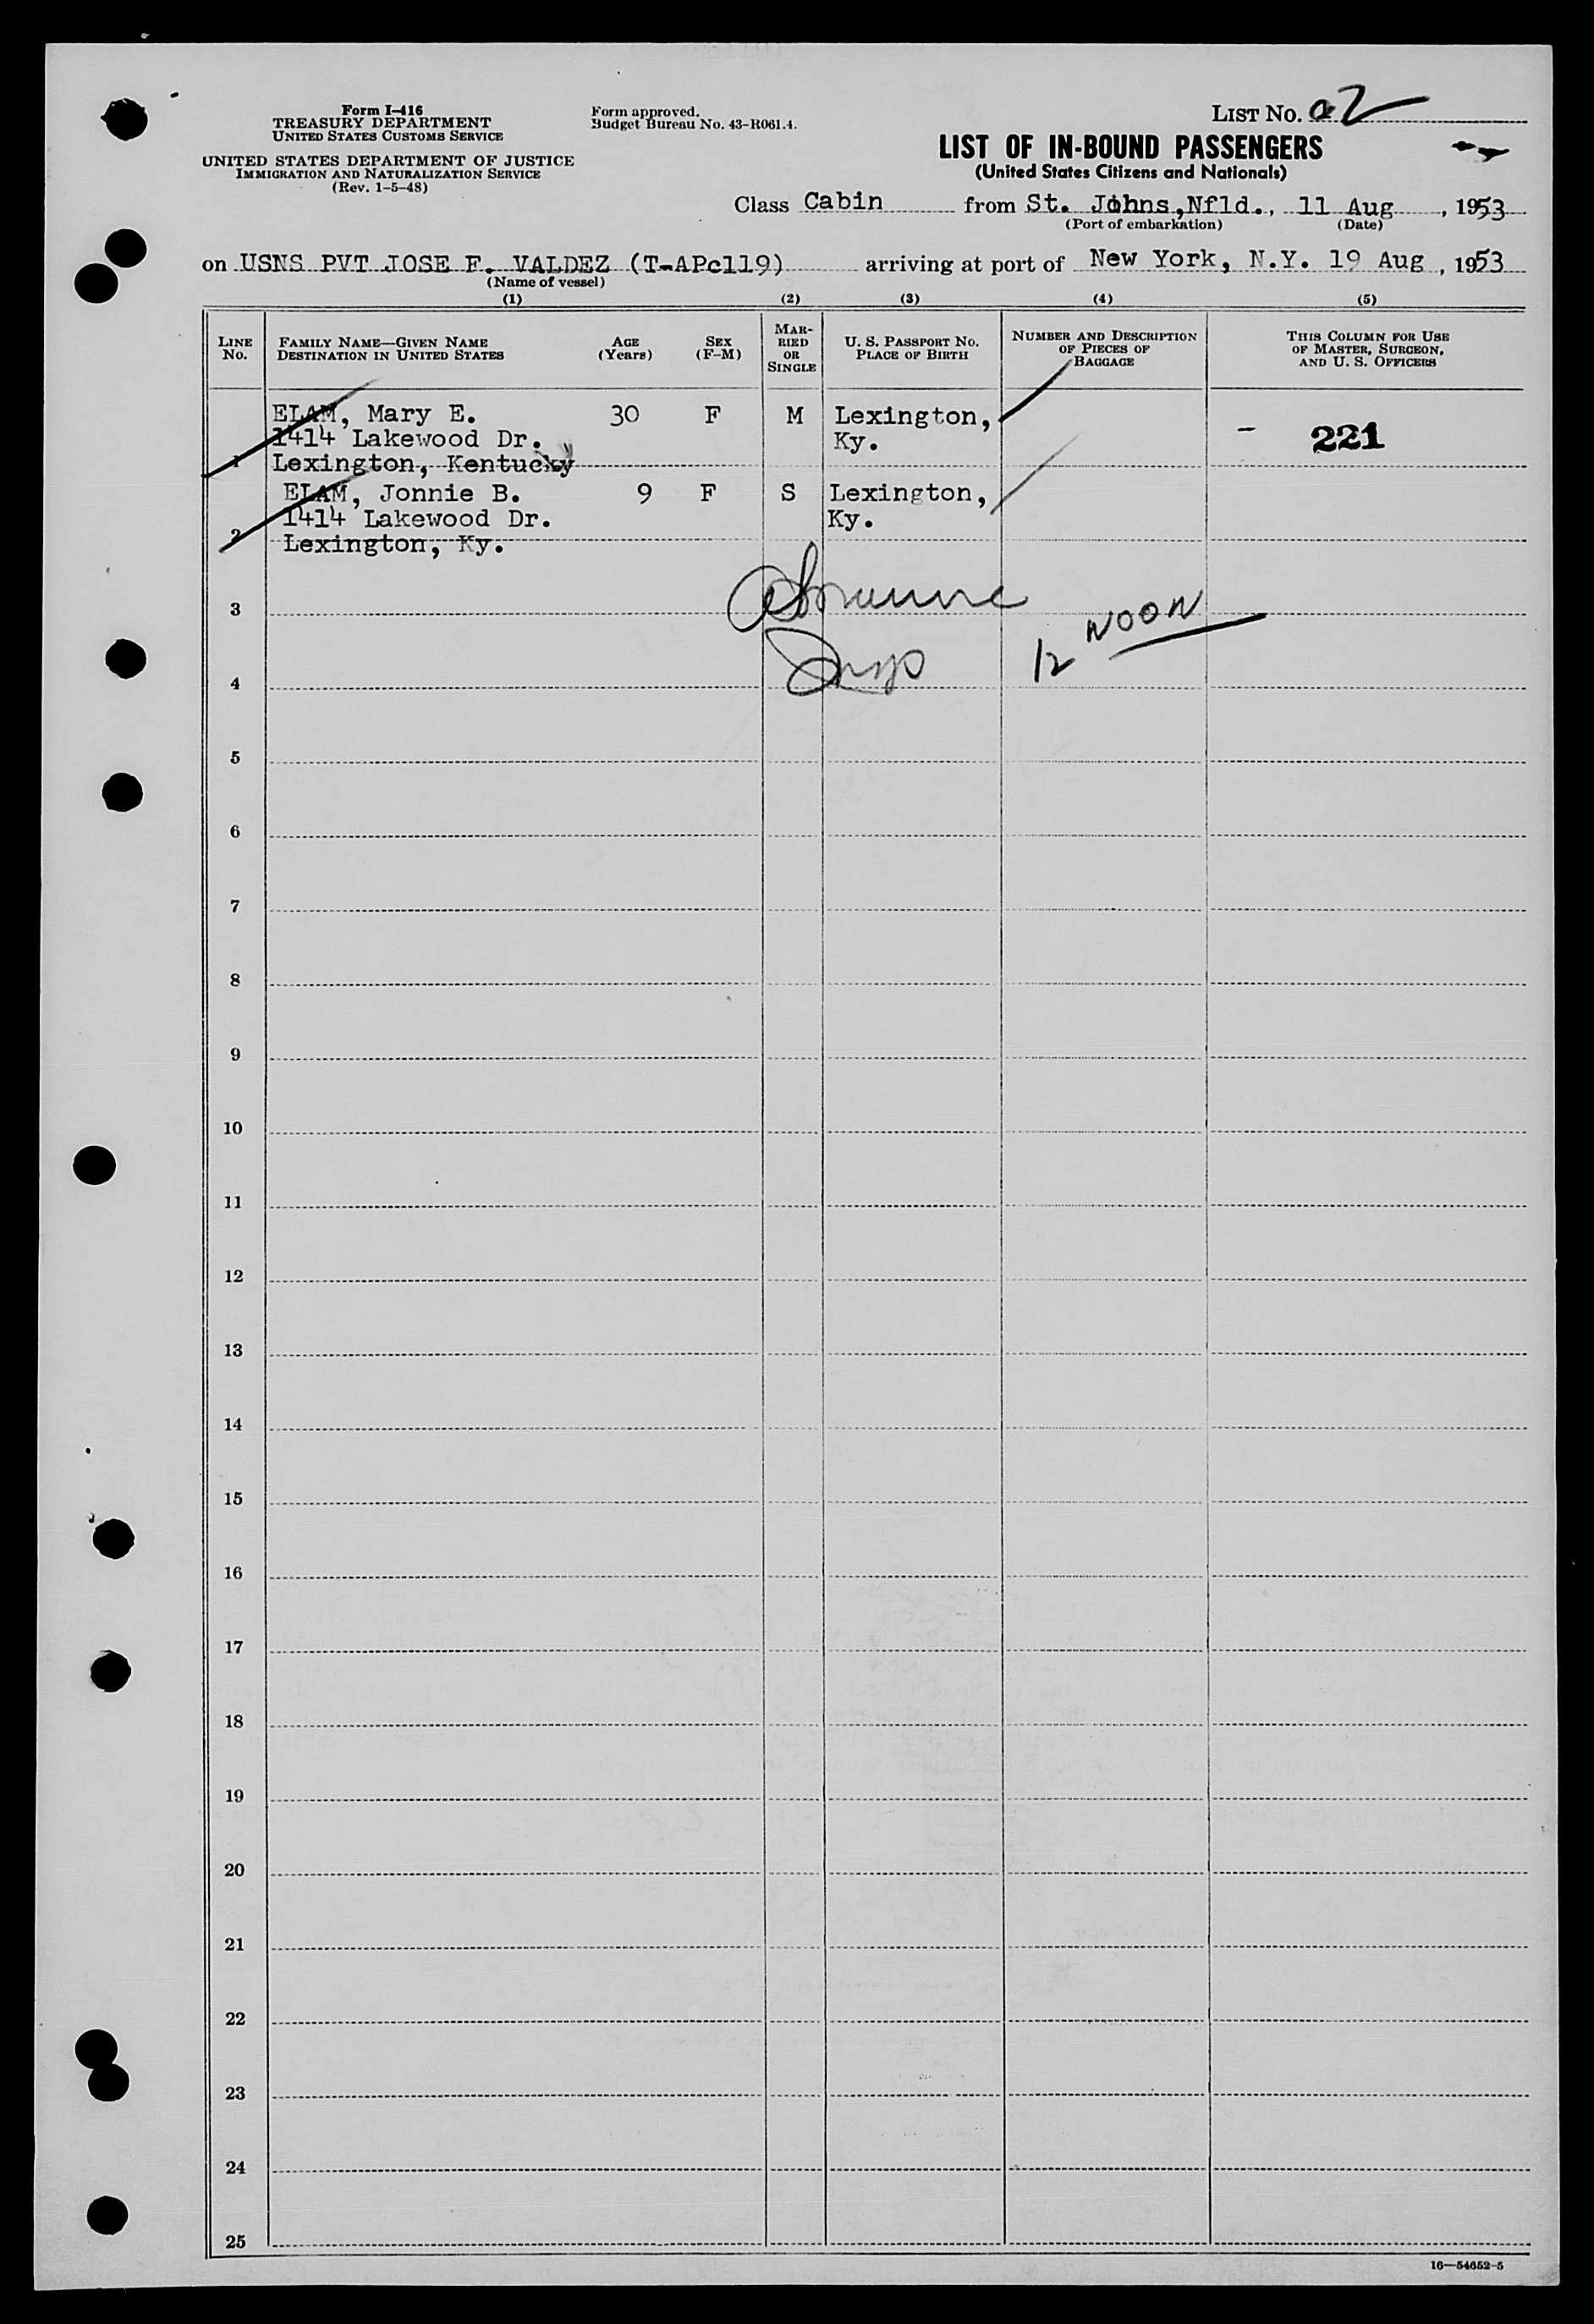 Form I-416
TREASURY DEPARTMENT
UNITED STATES CUSTOMS SERVICE
UNITED STATES DEPARTMENT OF JUSTICE
IMMIGRATION AND NATURALIZATION SERVICE
(Rev. 1-5-48)
Form approved.
Budget Bureau No. 43-R061.4.
LIST NO. 2
LIST OF IN-BOUND PASSENGERS
(United States Citizens and Nationals)
Class Cabin from St. Johns, Nfld., 11 Aug, 1953
(Port of embarkation) (Date)
on USNS PVT JOSE F. VALDEZ (T-APc119) arriving at port of New York, N.Y. 19 Aug, 1953
(Name of vessel)
(1) (2) (3) (4) (5)
LINE NO.
FAMILY NAME—GIVEN NAME
DESTINATION IN UNITED STATES
AGE (Years)
SEX (F-M)
MARRIED OR SINGLE
U. S. PASSPORT NO.
PLACE OF BIRTH
NUMBER AND DESCRIPTION OF PIECES OF BAGGAGE
THIS COLUMN FOR USE OF MASTER, SURGEON, AND U. S. OFFICERS
1 ELAM, Mary E. 30 F M Lexington, - 221
1414 Lakewood Dr. Ky.
Lexington, Kentucky
2 ELAM, Jonnie B. 9 F S Lexington,
1414 Lakewood Dr. Ky.
Lexington, Ky.
3
12 NOON
4
5
6
7
8
9
10
11
12
13
14
15
16
17
18
19
20
21
22
23
24
25
16—54652-5